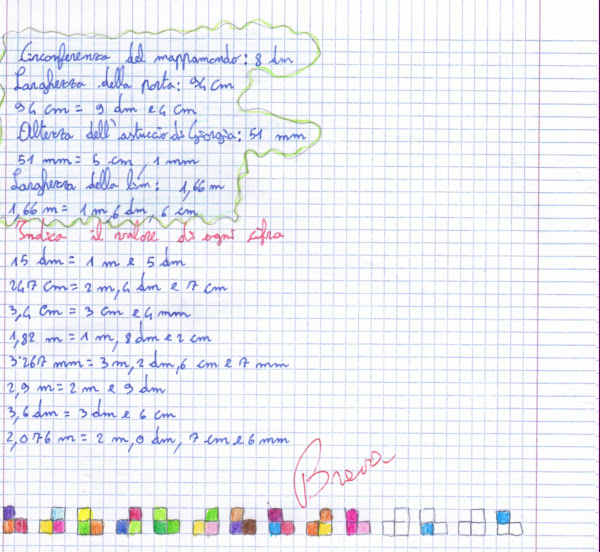 Circonferenza del mappamondo: 8 dm
Larghezza della porta: 94 cm
94 cm = 9 dm e 4 cm
Altezza dell'astuccio di Giorgia: 51 mm
51 mm = 5 cm, 1 mm
Larghezza della lim: 1,66 m
1,66 m = 1 m, 6 dm, 6 cm
Indica il valore di ogni cifra
15 dm = 1 m e 5 dm
247 cm = 2 m, 4 dm e 7 cm
3,4 cm = 3 cm e 4 mm
1,82 m = 1 m, 8 dm e 2 cm
3267 mm = 3 m, 2 dm, 6 cm e 7 mm
2,9 m = 2 m e 9 dm
3,6 dm = 3 dm e 6 cm
2,076 m = 2 m, 0 dm, 7 cm e 6 mm
Brava